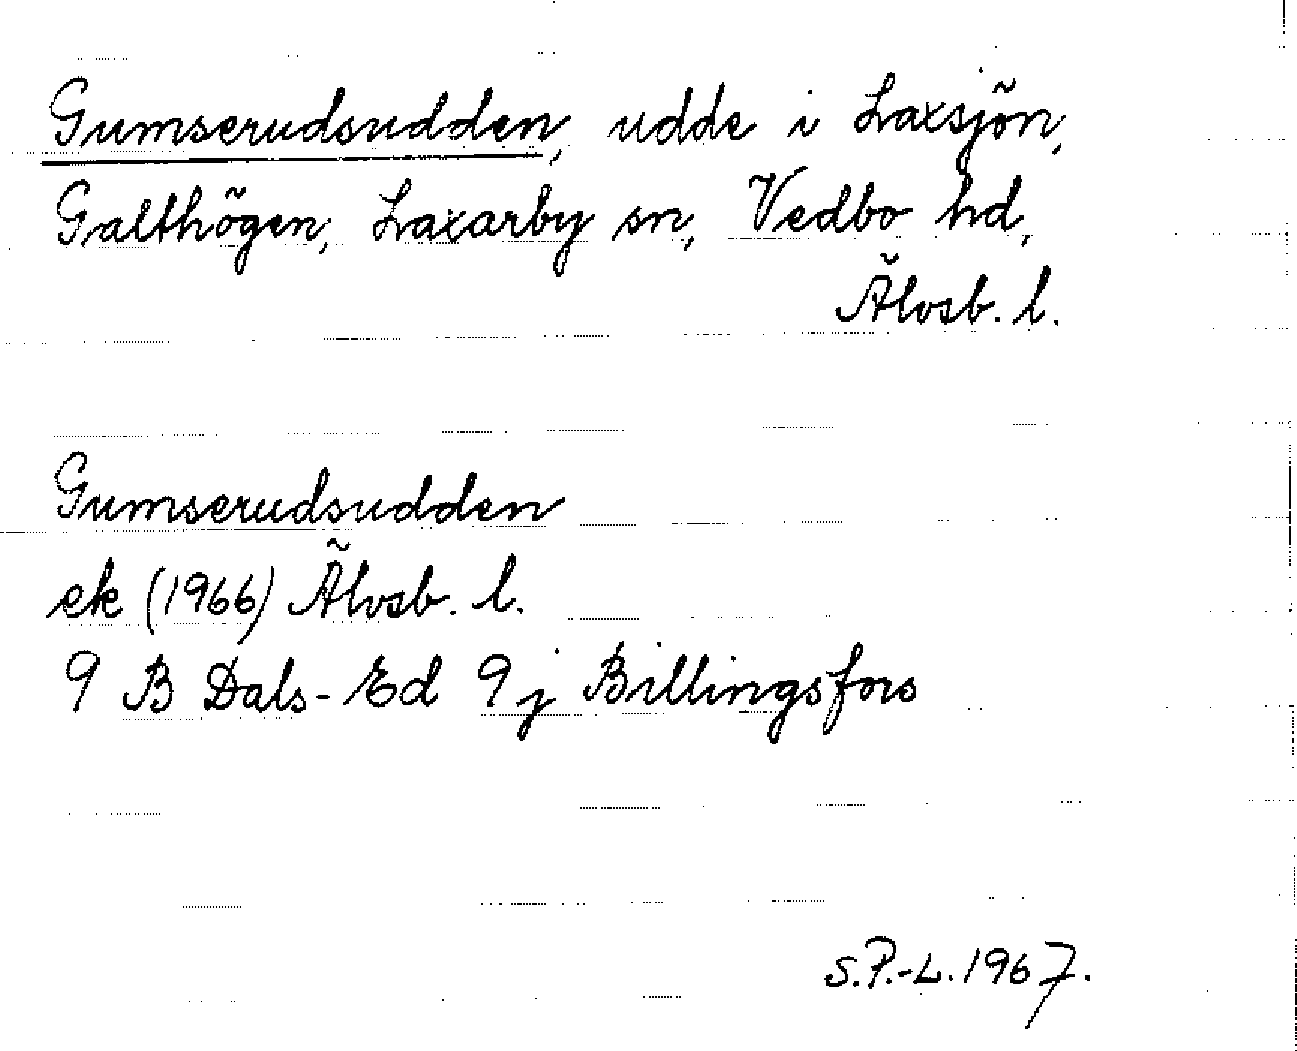 Gumserudsudden, udde i Laxsjön,
Galthögen, Laxarby sn, Vedbo hd,
Älvsb. l.
Gumserudsudden
ek (1966) Älvsb. l.
9 B Dals-Ed 9j Billingsfors
S.P.-L. 1967.